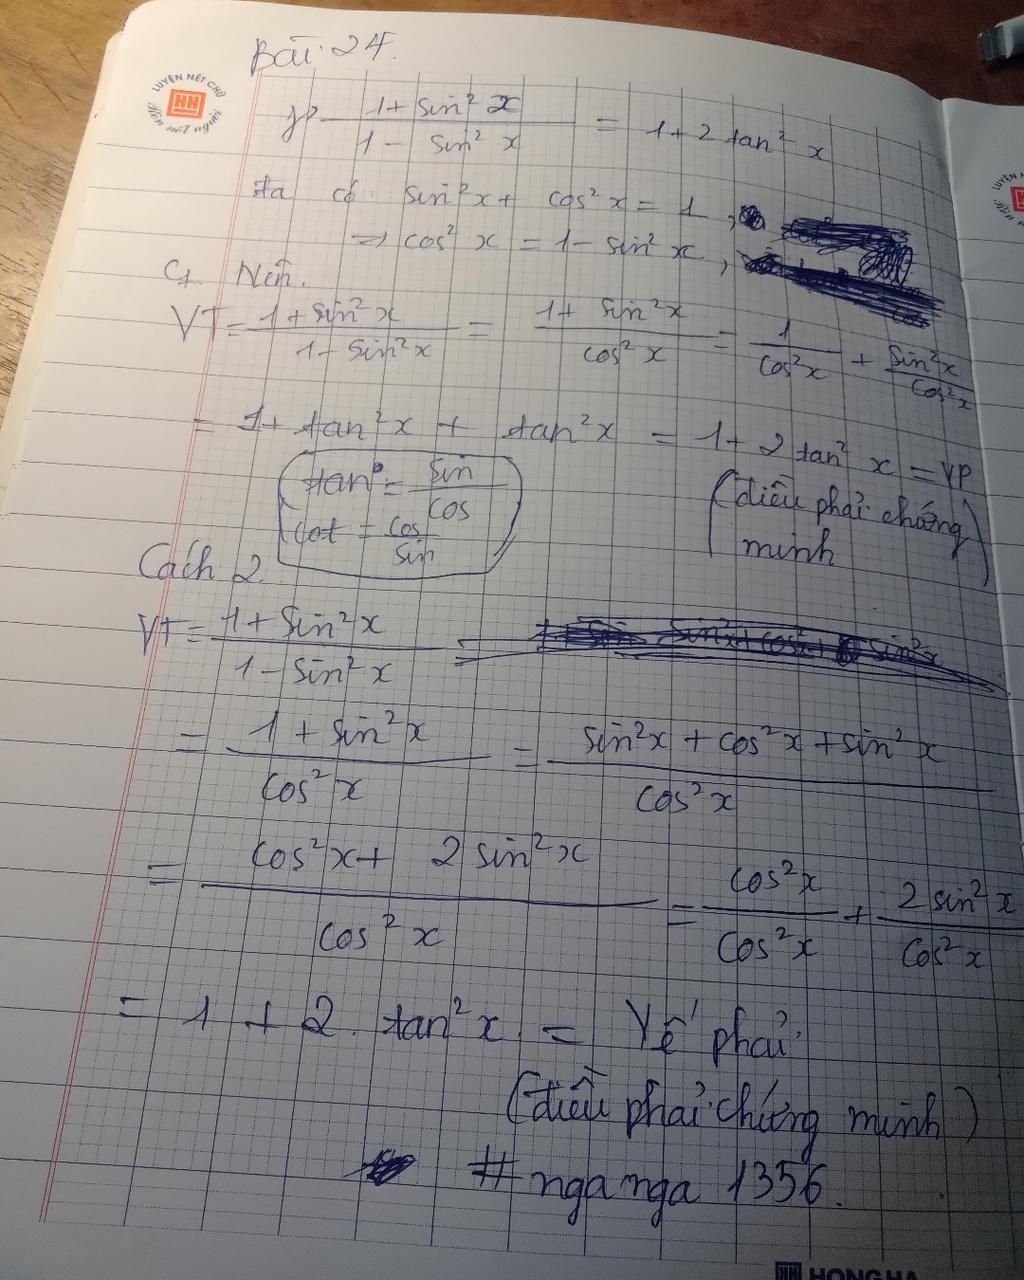 Bài 24.
LUYỆN NÉT CHỮ
HH
Rèn nết người
1 + sin² x / 1 - sin² x = 1 + 2 tan² x
ta có: sin²x + cos²x = 1,
⇒ cos² x = 1 - sin² x,
C1 Nên.
VT = 1 + sin²x / 1 - sin²x = 1 + sin²x / cos² x = 1 / cos²x + sin²x / cos²x
= 1 + tan²x + tan²x = 1 + 2 tan² x = VP
(điều phải chứng
minh)
tan = sin / cos
cot = cos / sin
Cách 2
VT = 1 + sin²x / 1 - sin²x =
= 1 + sin²x / cos²x = sin²x + cos²x + sin²x / cos²x
= cos²x + 2 sin²x / cos²x = cos²x / cos²x + 2 sin²x / cos²x
= 1 + 2. tan²x. = Vế phải.
(điều phải chứng minh)
# nga nga 1356.
HONG HA